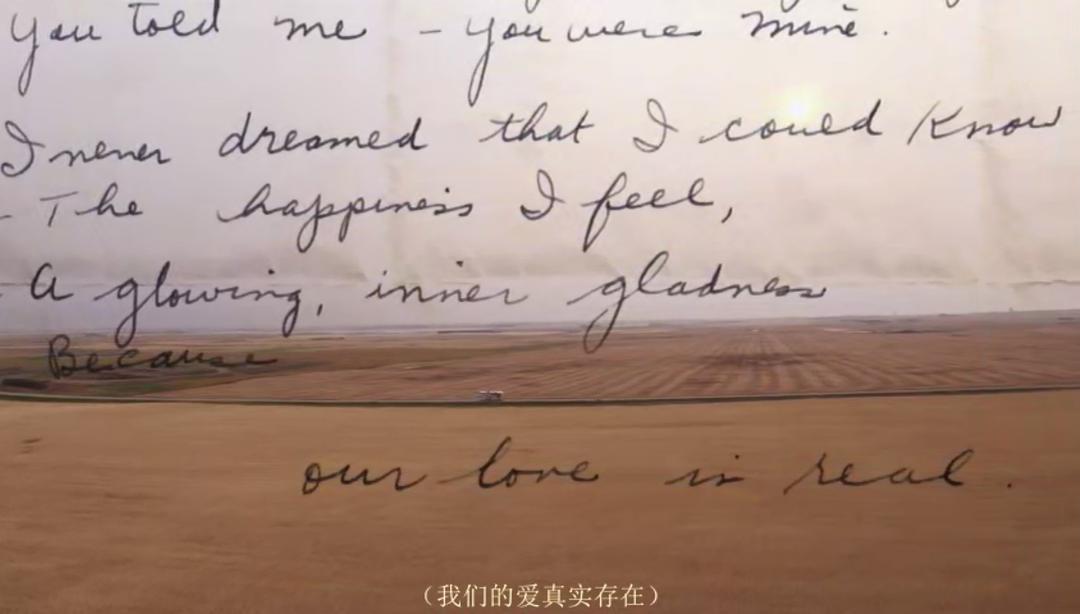 you told me – you were mine.
I never dreamed that I could know
- The happiness I feel,
- A glowing, inner gladness
Because
our love is real.
（我们的爱真实存在）